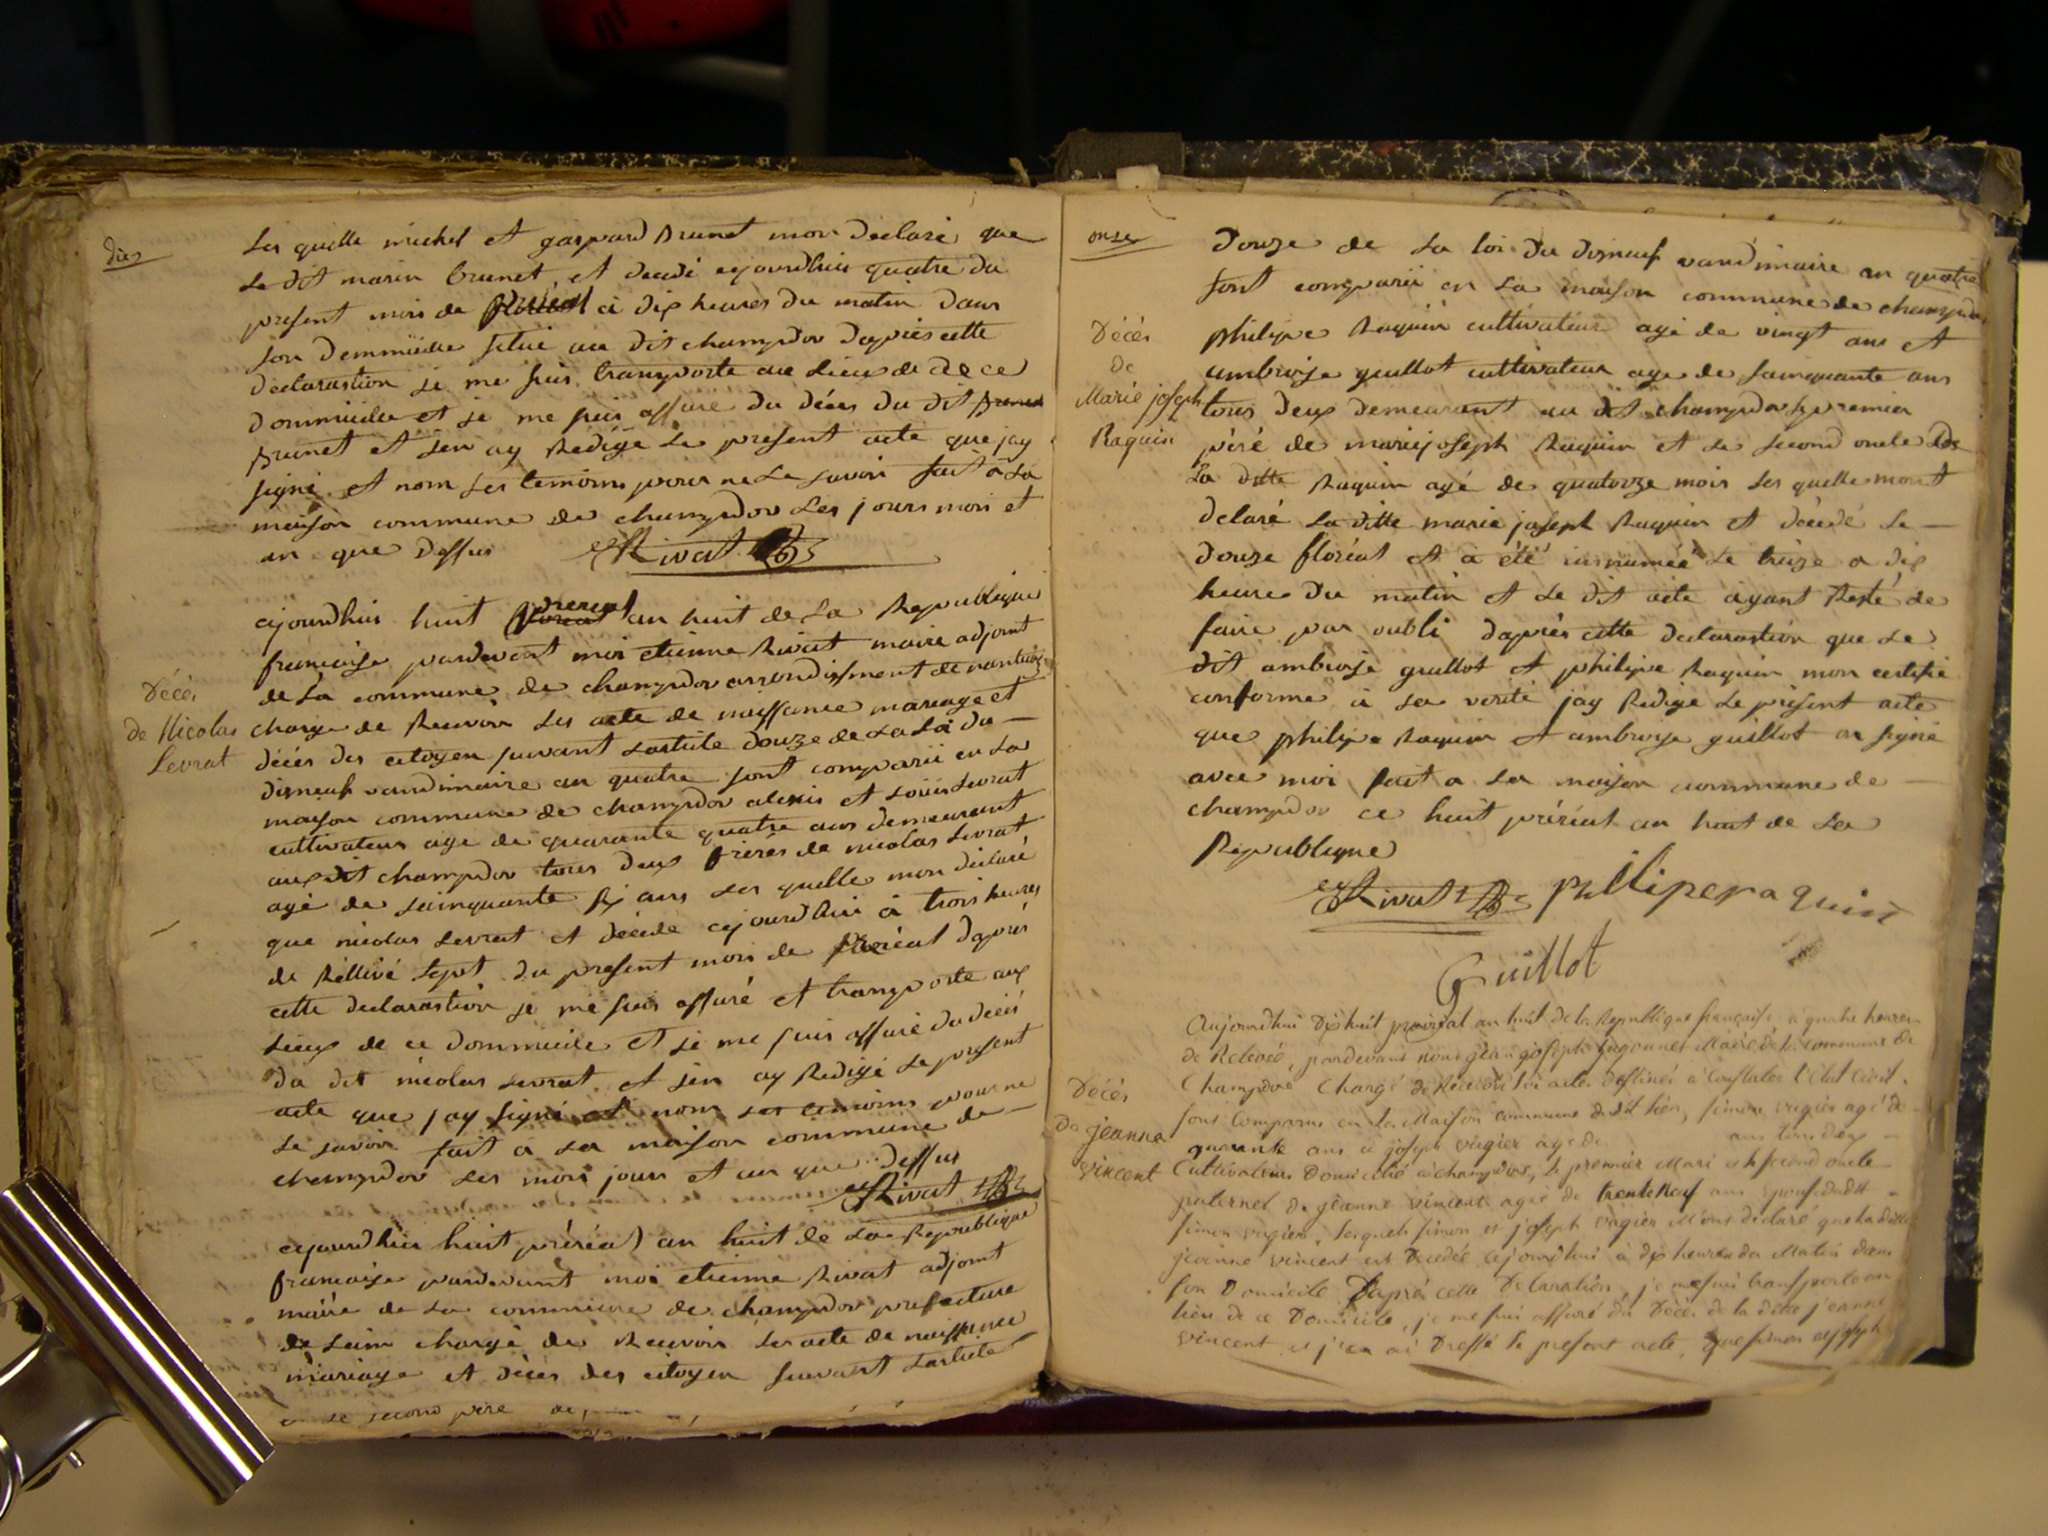 dix
Les quelle michel et gaspard Brunet mon déclaré que
Le dit marin brunet et decedé cejourdhui quatre du
present mois de à dix heures du matin dans
son dommicille situé au dit champdor daprès cette
déclarastion je me suis transporte au Lieux de de ce
dommicille et je me suis assuré du décès du dit
Brunet et jen ay Redigé Le present acte que jay
signé et nom Les temoins pour ne Le savoir fait a La
maison commune de champdor Les jours mois et
an que dessus Rivat
cejourdhui huit prereal an huit de La Republique
francaise pardevant moi etienne Rivat maire adjoint
de La commune de champdor arrondissment de nantua
Décès
de Nicolas
Levrat
charge de Recevoir Les acte de naissance mariage et
décès des citoyen suivant Larticle douze de La Loi du
disneuf vandimaire an quatre sont comparü en La
maison commune de champdor alexis et Louis Levrat
cultivateur age de quarante quatre ans demeurant
aux dit champdor tous deux frères de nicolas Levrat
agé de sainquante six ans Les quelle mon déclaré
que nicolas Levrat et décédé cejourdhui à trois heures
de Rellevé sept du present mois de daprès
cette declarastion je me suis assuré et transporte aux
Lieux de ce dommicile et je me suis assuré du décès
du dit nicolas Levrat et jen ay Redigé Le present
acte que jay signé et nom Les temoins pour ne
Le savoir fait a La maison commune de
champdor Les mois jours et an que dessus
Rivat
cejourdhui huit préréal an huit de La Republique
francaise pardevant moi etienne Rivat adjoint
maire de La commune de champdor prefecture
de Lain chargé de Recevoir Les acte de naissance
mariage et décès des citoyen suivant Lartïcle
Le second père de
onze
douze de La loi du disneuf vandimaire an quatre
sont comparü en La maison commune de champdor
Décès
de
Marie joseph
Raquin
philipe Raquin cultivateur agé de vingt ans et
ambroise guillot cultivateur age de sainquante ans
tous deux demeurant au dit champdor Le premier
père de marie joseph Raquin et Le second oncle de
La ditte Raquin agé de quatorze mois Les quelle mont
déclaré La ditte marie joseph Raquin et décédé Le
douze floréal et a été innumée Le treize a dix
heure du matin et Le dit acte ayant Resté de
faire par oubli daprès cette declarastion que Le
dit ambroise guillot et philipe Raquin mon certifié
conforme a La verité jay Redigé Le présent acte
que philipe Raquin et ambroise guillot on signé
avec moi fait a La maison commune de
champdor ce huit préréal an huit de La
Republique
Rivat philliperaquin
Guillot
Aujourdhui Dix huit prairial an huit de la Republique française, a quatre heures
de Relevée, pardevant nous jean joseph Maire de la commune de
Champdor Chargé de Recevoir les actes destinés à Constater l'état Civil,
sont Comparus en la Maison commune dudit lieu, simon vugier agé de
Décès
De jeanne
vincent
quarante ans et joseph vugier agé de ans tous deux
Cultivateurs Domicilié a champdor, le premier Mari et le second oncle
paternel de jeanne vincent agée de trente Neuf ans épouse dudit
simon vugier, lesquels simon et joseph vugier M'ont déclaré que la ditte
jeanne vincent est Décédée cejourdhui à dix heures du Matin dans
son Domicile D'après cette Déclaration, je me suis transporté au
lieu de ce Domicile, je me suis assuré du Décès de la ditte jeanne
vincent et j'en ai Dressé le présent acte, que simon et joseph